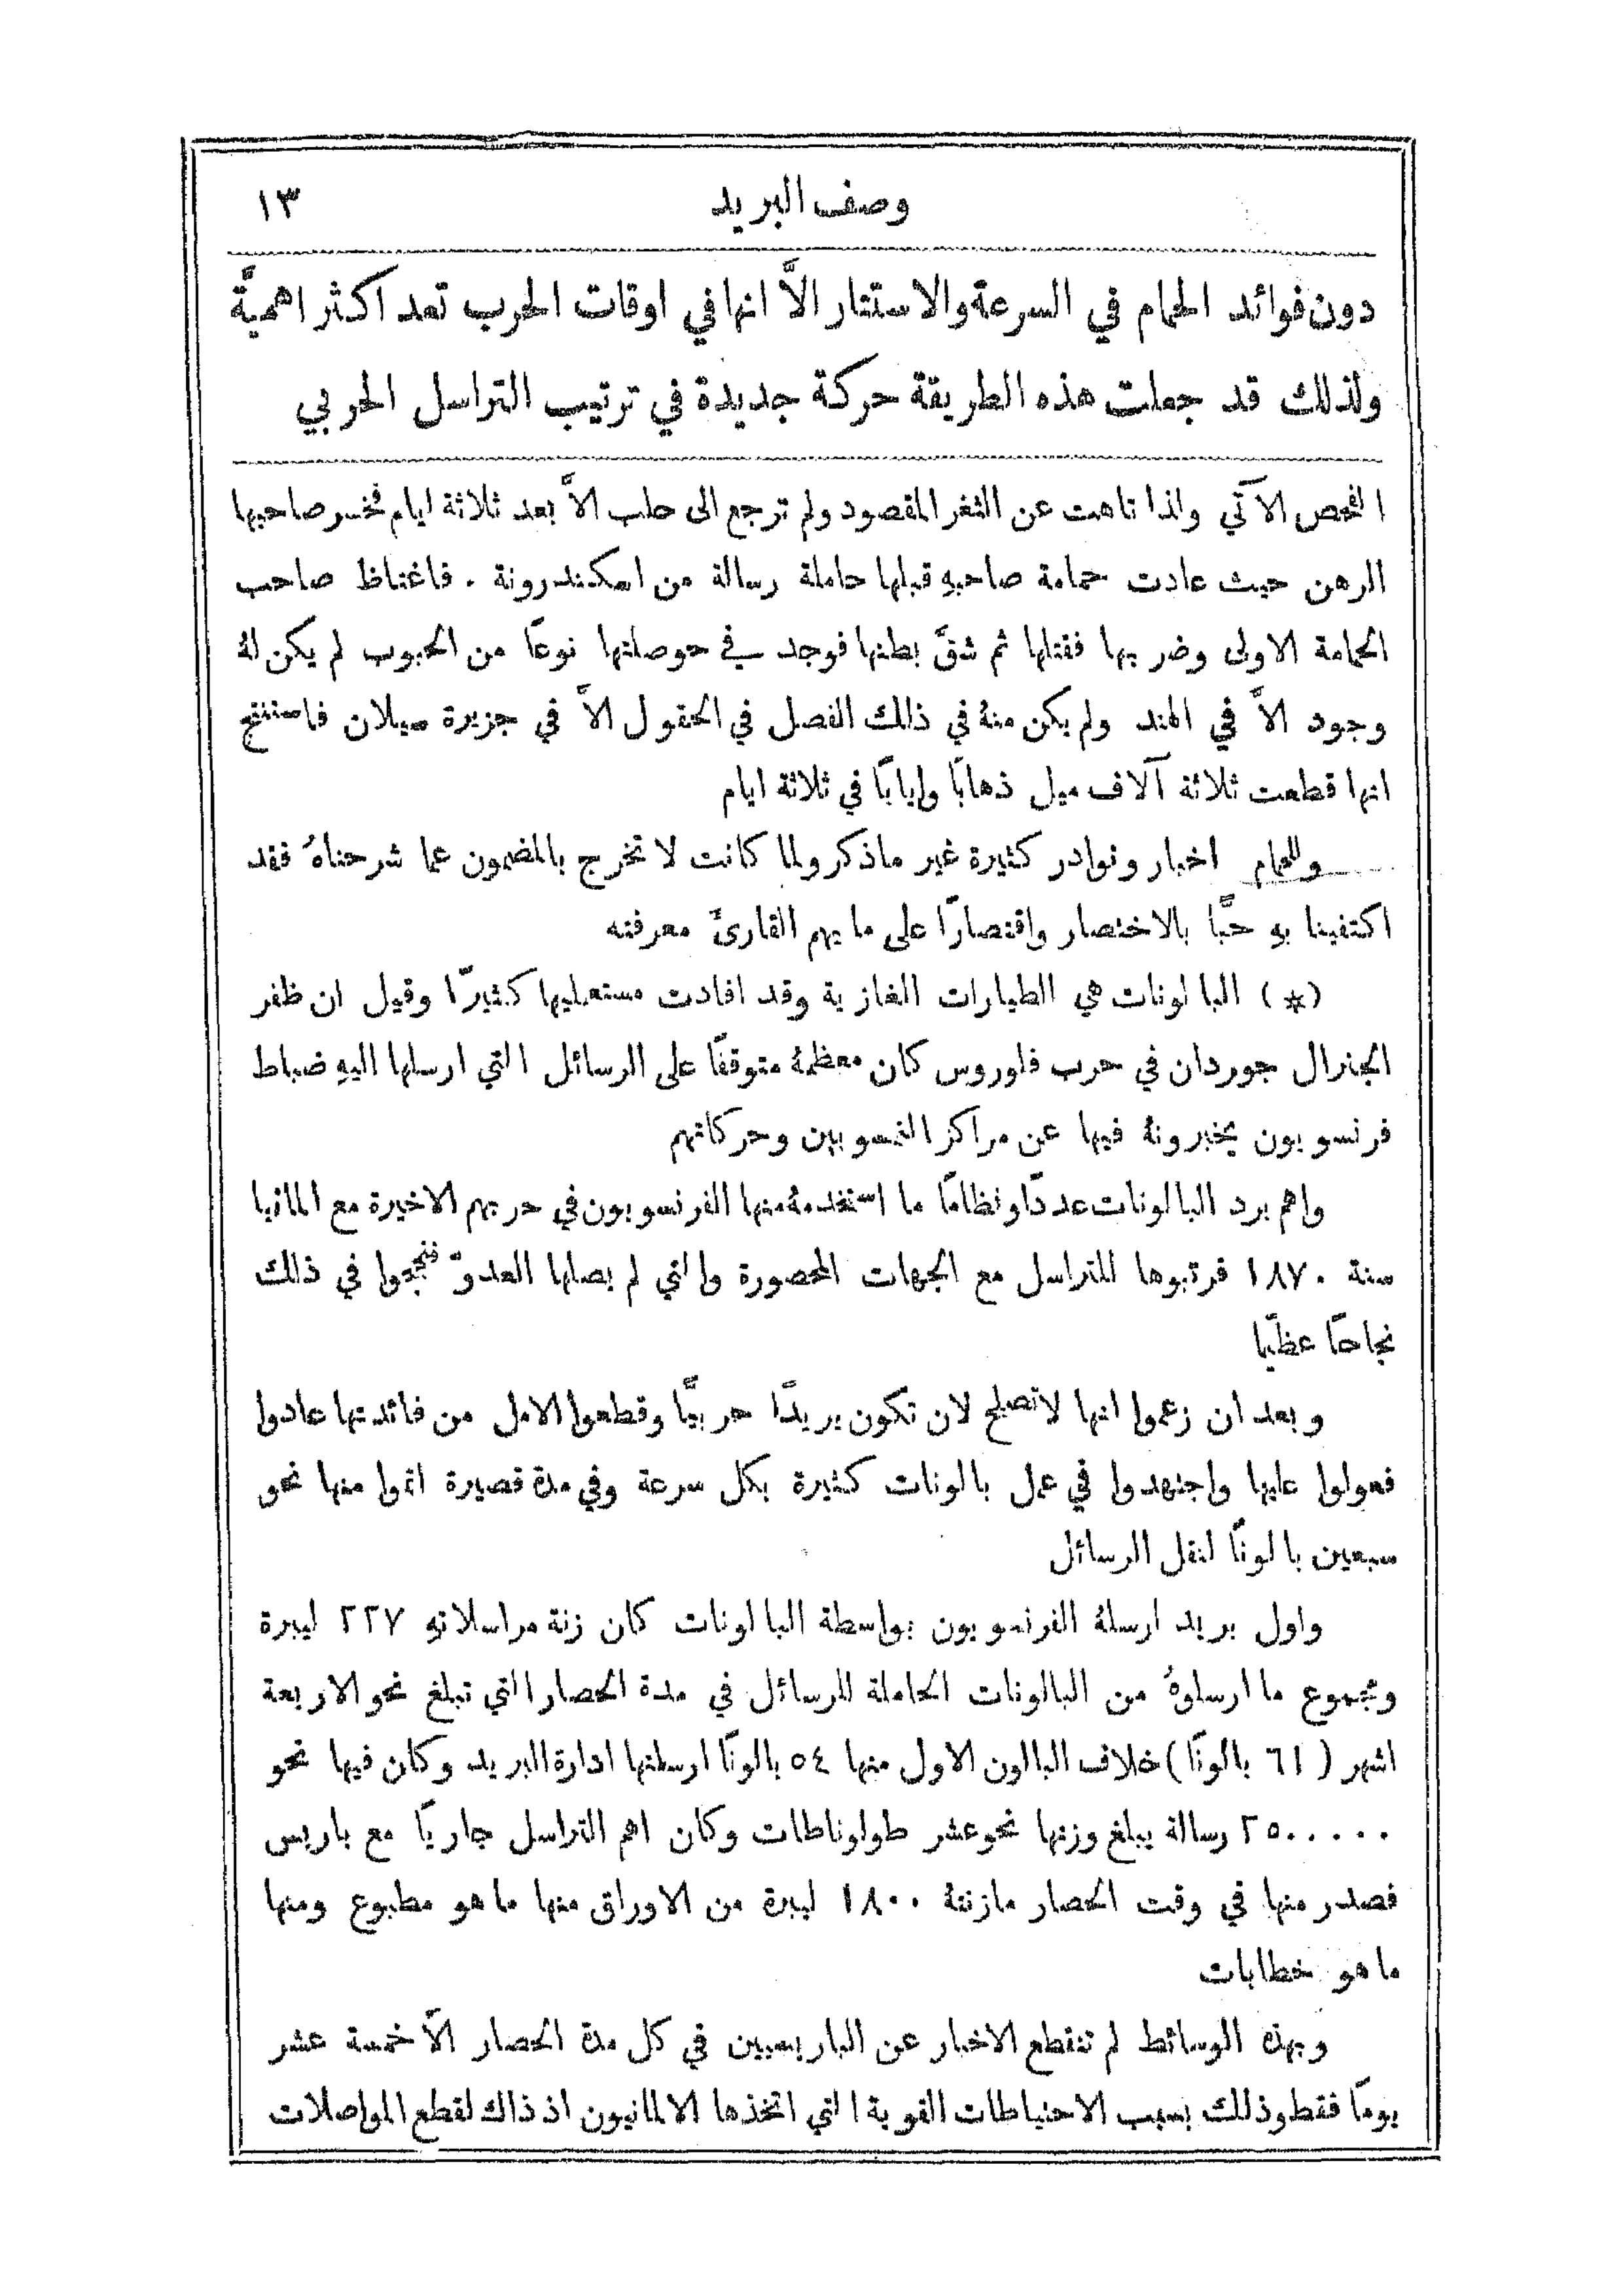 وصف البريد ١٣
دون فوائد الحمام في السرعة والاستتار الاَّ انها في اوقات الحرب تعد اكثر اهميَّة
ولذلك قد جعلت هذه الطريقة حركة جديدة في ترتيب التراسل الحربي
الفحص الآتي واذا تاهت عن الثغر المقصود ولم ترجع الى حلب الاَّ بعد ثلاثة ايام فخسر صاحبها
الرهن حيث عادت حمامة صاحبهِ قبلها حاملة رسالة من اسكندرونة . فاغتاظ صاحب
الحمامة الاولى وضربها فقتلها ثم شقَّ بطنها فوجد في حوصلتها نوعًا من الحبوب لم يكن لهُ
وجود الاَّ في الهند ولم يكن منهُ في ذلك الفصل في الحقول الاَّ في جزيرة سيلان فاستنتج
انها قطعت ثلاثة آلاف ميل ذهابًا وايابًا في ثلاثة ايام
وللحمام اخبار ونوادر كثيرة غير ما ذكر ولما كانت لا تخرج بالمضمون عما شرحناهُ فقد
اكتفينا بهِ حبًّا بالاختصار واقتصارًا على ما يهم القارئَ معرفته
(*) البالونات هي الطيارات الغازية وقد افادت مستعمليها كثيرًا وقيل ان ظفر
الجنرال جوردان في حرب فلوروس كان معظمهُ متوقفًا على الرسائل التي ارسلها اليهِ ضباط
فرنسويون يخبرونهُ فيها عن مراكز النمسويين وحركاتهم
واهم برد البالونات عددًا ونظامًا ما استخدمهُ منها الفرنسويون في حربهم الاخيرة مع المانيا
سنة ١٨٧٠ فرتبوها للتراسل مع الجهات المحصورة والتي لم يصلها العدوّ فنجحوا في ذلك
نجاحًا عظيمًا
وبعد ان زعموا انها لا تصلح لان تكون بريدًا حربيًّا وقطعوا الامل من فائدتها عادوا
فعولوا عليها واجتهدوا في عمل بالونات كثيرة بكل سرعة وفي مدة قصيرة اتموا منها نحو
سبعين بالونًا لنقل الرسائل
واول بريد ارسلهُ الفرنسويون بواسطة البالونات كان زنة مراسلاتهِ ٢٢٧ ليبرة
ومجموع ما ارسلوهُ من البالونات الحاملة للرسائل في مدة الحصار التي تبلغ نحو الاربعة
اشهر (٦١ بالونًا) خلاف البالون الاول منها ٥٤ بالونًا ارسلتها ادارة البريد وكان فيها نحو
٢٥٠٠٠٠٠ رسالة يبلغ وزنها نحو عشر طولوناطات وكان اهم التراسل جاريًا مع باريس
فصدر منها في وقت الحصار ما زنتهُ ١٨٠٠ ليبرة من الاوراق منها ما هو مطبوع ومنها
ما هو خطابات
وبهذه الوسائط لم تنقطع الاخبار عن الباريسيين في كل مدة الحصار الاَّ خمسة عشر
يومًا فقط وذلك بسبب الاحتياطات القوية التي اتخذها الالمانيون اذ ذاك لقطع المواصلات